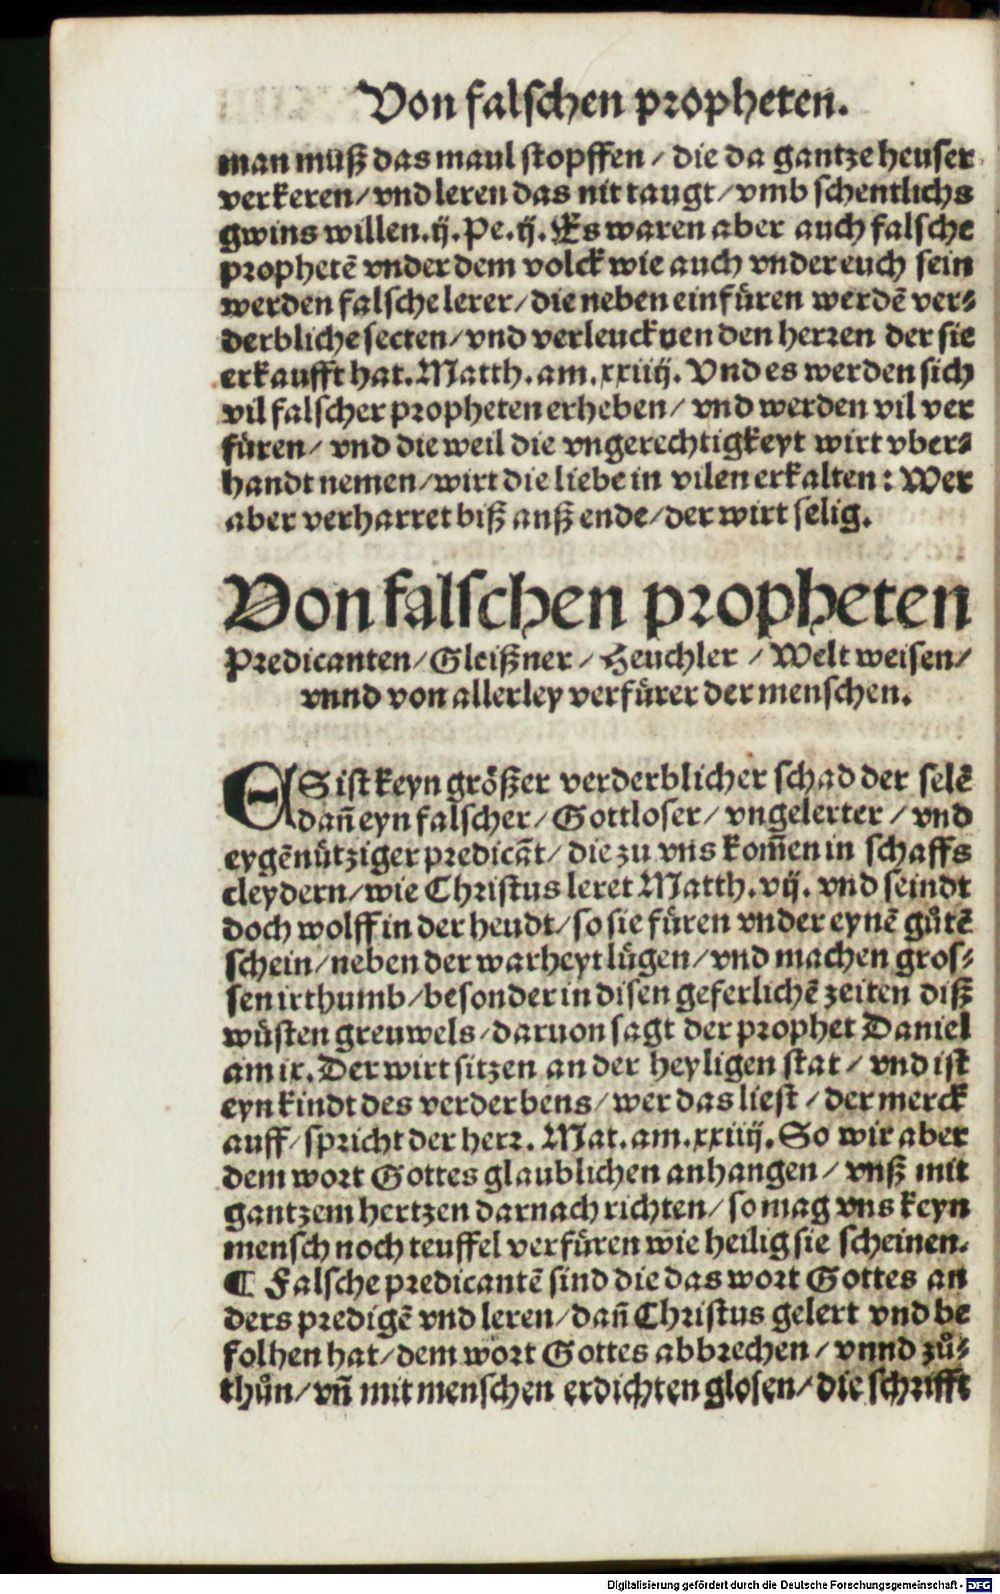 Von falschen propheten.
man muß das maul stopffen / die da gantze heuser
verkeren / vnd leren das nit taugt / vmb schentlichs
gwins willen. ij. Pe. ij. Es waren aber auch falsche
prophetẽ vnder dem volck wie auch vnder euch sein
werden falsche lerer / die neben einfüren werdẽ ver⸗
derbliche secten / vnd verleucknen den herren der sie
erkaufft hat. Matth. am. xxiiij. Vnd es werden sich
vil falscher propheten erheben / vnd werden vil ver
füren / vnd die weil die vngerechtigkeyt wirt vber⸗
handt nemen / wirt die liebe in vilen erkalten: Wer
aber verharret biß anß ende / der wirt selig.
Von falschen propheten
Predicanten / Gleißner / Heuchler / Welt weisen /
vnnd von allerley verfürer der menschen.
ES ist keyn größer verderblicher schad der selẽ
dañ eyn falscher / Gottloser / vngelerter / vnd
eygẽnütziger predicãt / die zu vns kom̃en in schaffs
cleydern / wie Christus leret Matth. vij. vnd seindt
doch wolff in der heudt / so sie füren vnder eynẽ gůtẽ
schein / neben der warheyt lügen / vnd machen gros⸗
sen irthumb / besonder in disen geferlichẽ zeiten diß
wüsten greuwels / daruon sagt der prophet Daniel
am ix. Der wirt sitzen an der heyligen stat / vnd ist
eyn kindt des verderbens / wer das liest / der merck
auff / spricht der herr. Mat. am. xxiiij. So wir aber
dem wort Gottes glaublichen anhangen / vnß mit
gantzem hertzen darnach richten / so mag vns keyn
mensch noch teuffel verfüren wie heilig sie scheinen.
¶ Falsche predicantẽ sind die das wort Gottes an
ders predigẽ vnd leren / dañ Christus gelert vnd be
folhen hat / dem wort Gottes abbrechen / vnnd zů⸗
thůn / vñ mit menschen erdichten glosen / die schrifft
Digitalisierung gefördert durch die Deutsche Forschungsgemeinschaft - DFG